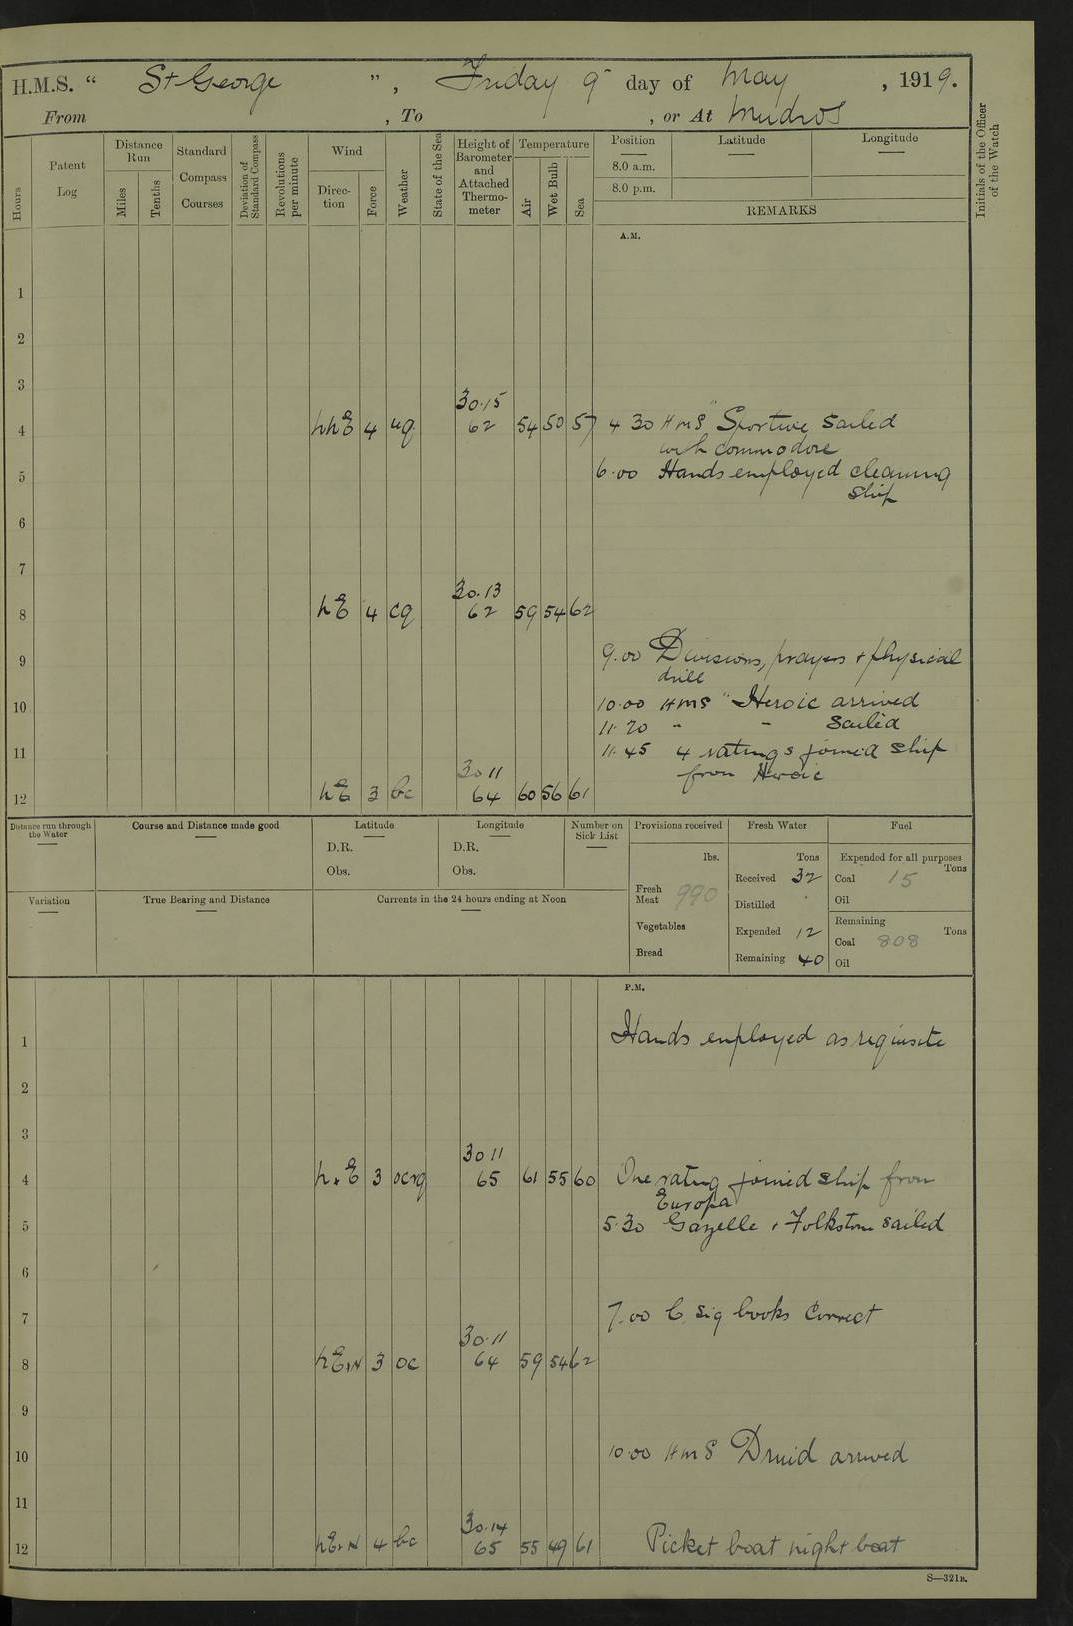 H.M.S. “ St George ”, Friday 9th day of May, 1919.
From , To , or At Mudros
Hours
Patent Log
Distance Run
Miles
Tenths
Standard Compass Courses
Deviation of Standard Compass
Revolutions per minute
Wind
Direction
Force
Weather
State of the Sea
Height of Barometer and Attached Thermometer
Temperature
Air
Wet Bulb
Sea
Position
Latitude
Longitude
8.0 a.m.
8.0 p.m.
REMARKS
Initials of the Officer of the Watch
A.M.
1
2
3
30.15
4 NNE 4 uq 62 54 50 57 4 30 HMS "Sportive sailed
with commodore
5 6.00 Hands employed cleaning
ship
6
7
30.13
8 NE 4 cq 62 59 54 62
9 9.00 Divisions, prayers + physical
drill
10 10.00 HMS "Heroic arrived
11.20 " - Sailed
11 11.45 4 ratings joined ship
from Heroic
30 11
12 NE 3 bc 64 60 56 61
Distance run through the Water
Course and Distance made good
Latitude
D.R.
Obs.
Longitude
D.R.
Obs.
Number on Sick List
Provisions received
lbs.
Fresh Meat 990
Vegetables
Bread
Fresh Water
Tons
Received 32
Distilled
Expended 12
Remaining 40
Fuel
Expended for all purposes
Tons
Coal 15
Oil
Remaining
Tons
Coal 808
Oil
Variation
True Bearing and Distance
Currents in the 24 hours ending at Noon
P.M.
1 Hands employed as requisite
2
3
30 11
4 3 ocrq 65 61 55 60 One rating joined ship from
Europa
5 5.30 Gazelle + Folkstone sailed
6
7 7.00 C. Sig books Correct
30.11
8 NExN 3 oc 64 59 54 62
9
10 10.00 HMS Druid arrived
11
30.14
12 NExN 4 bc 65 55 49 61 Picket boat night boat
S—321B.